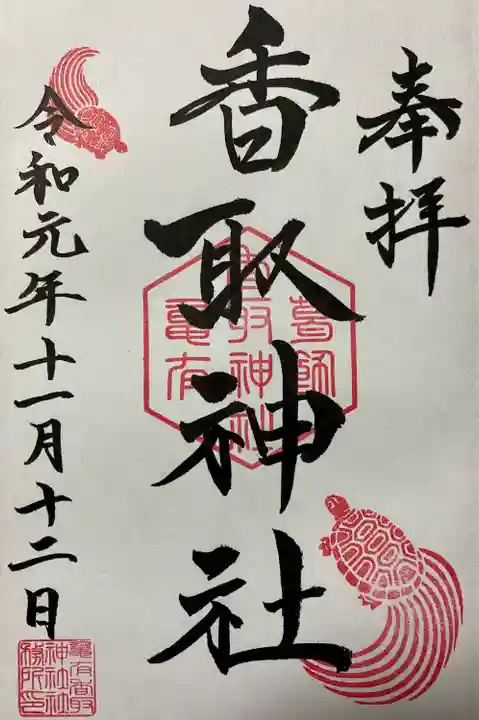 奉拝
香取神社
令和元年十一月十二日
葛飾
香取神社
亀有
亀有香取
神社社
務所印